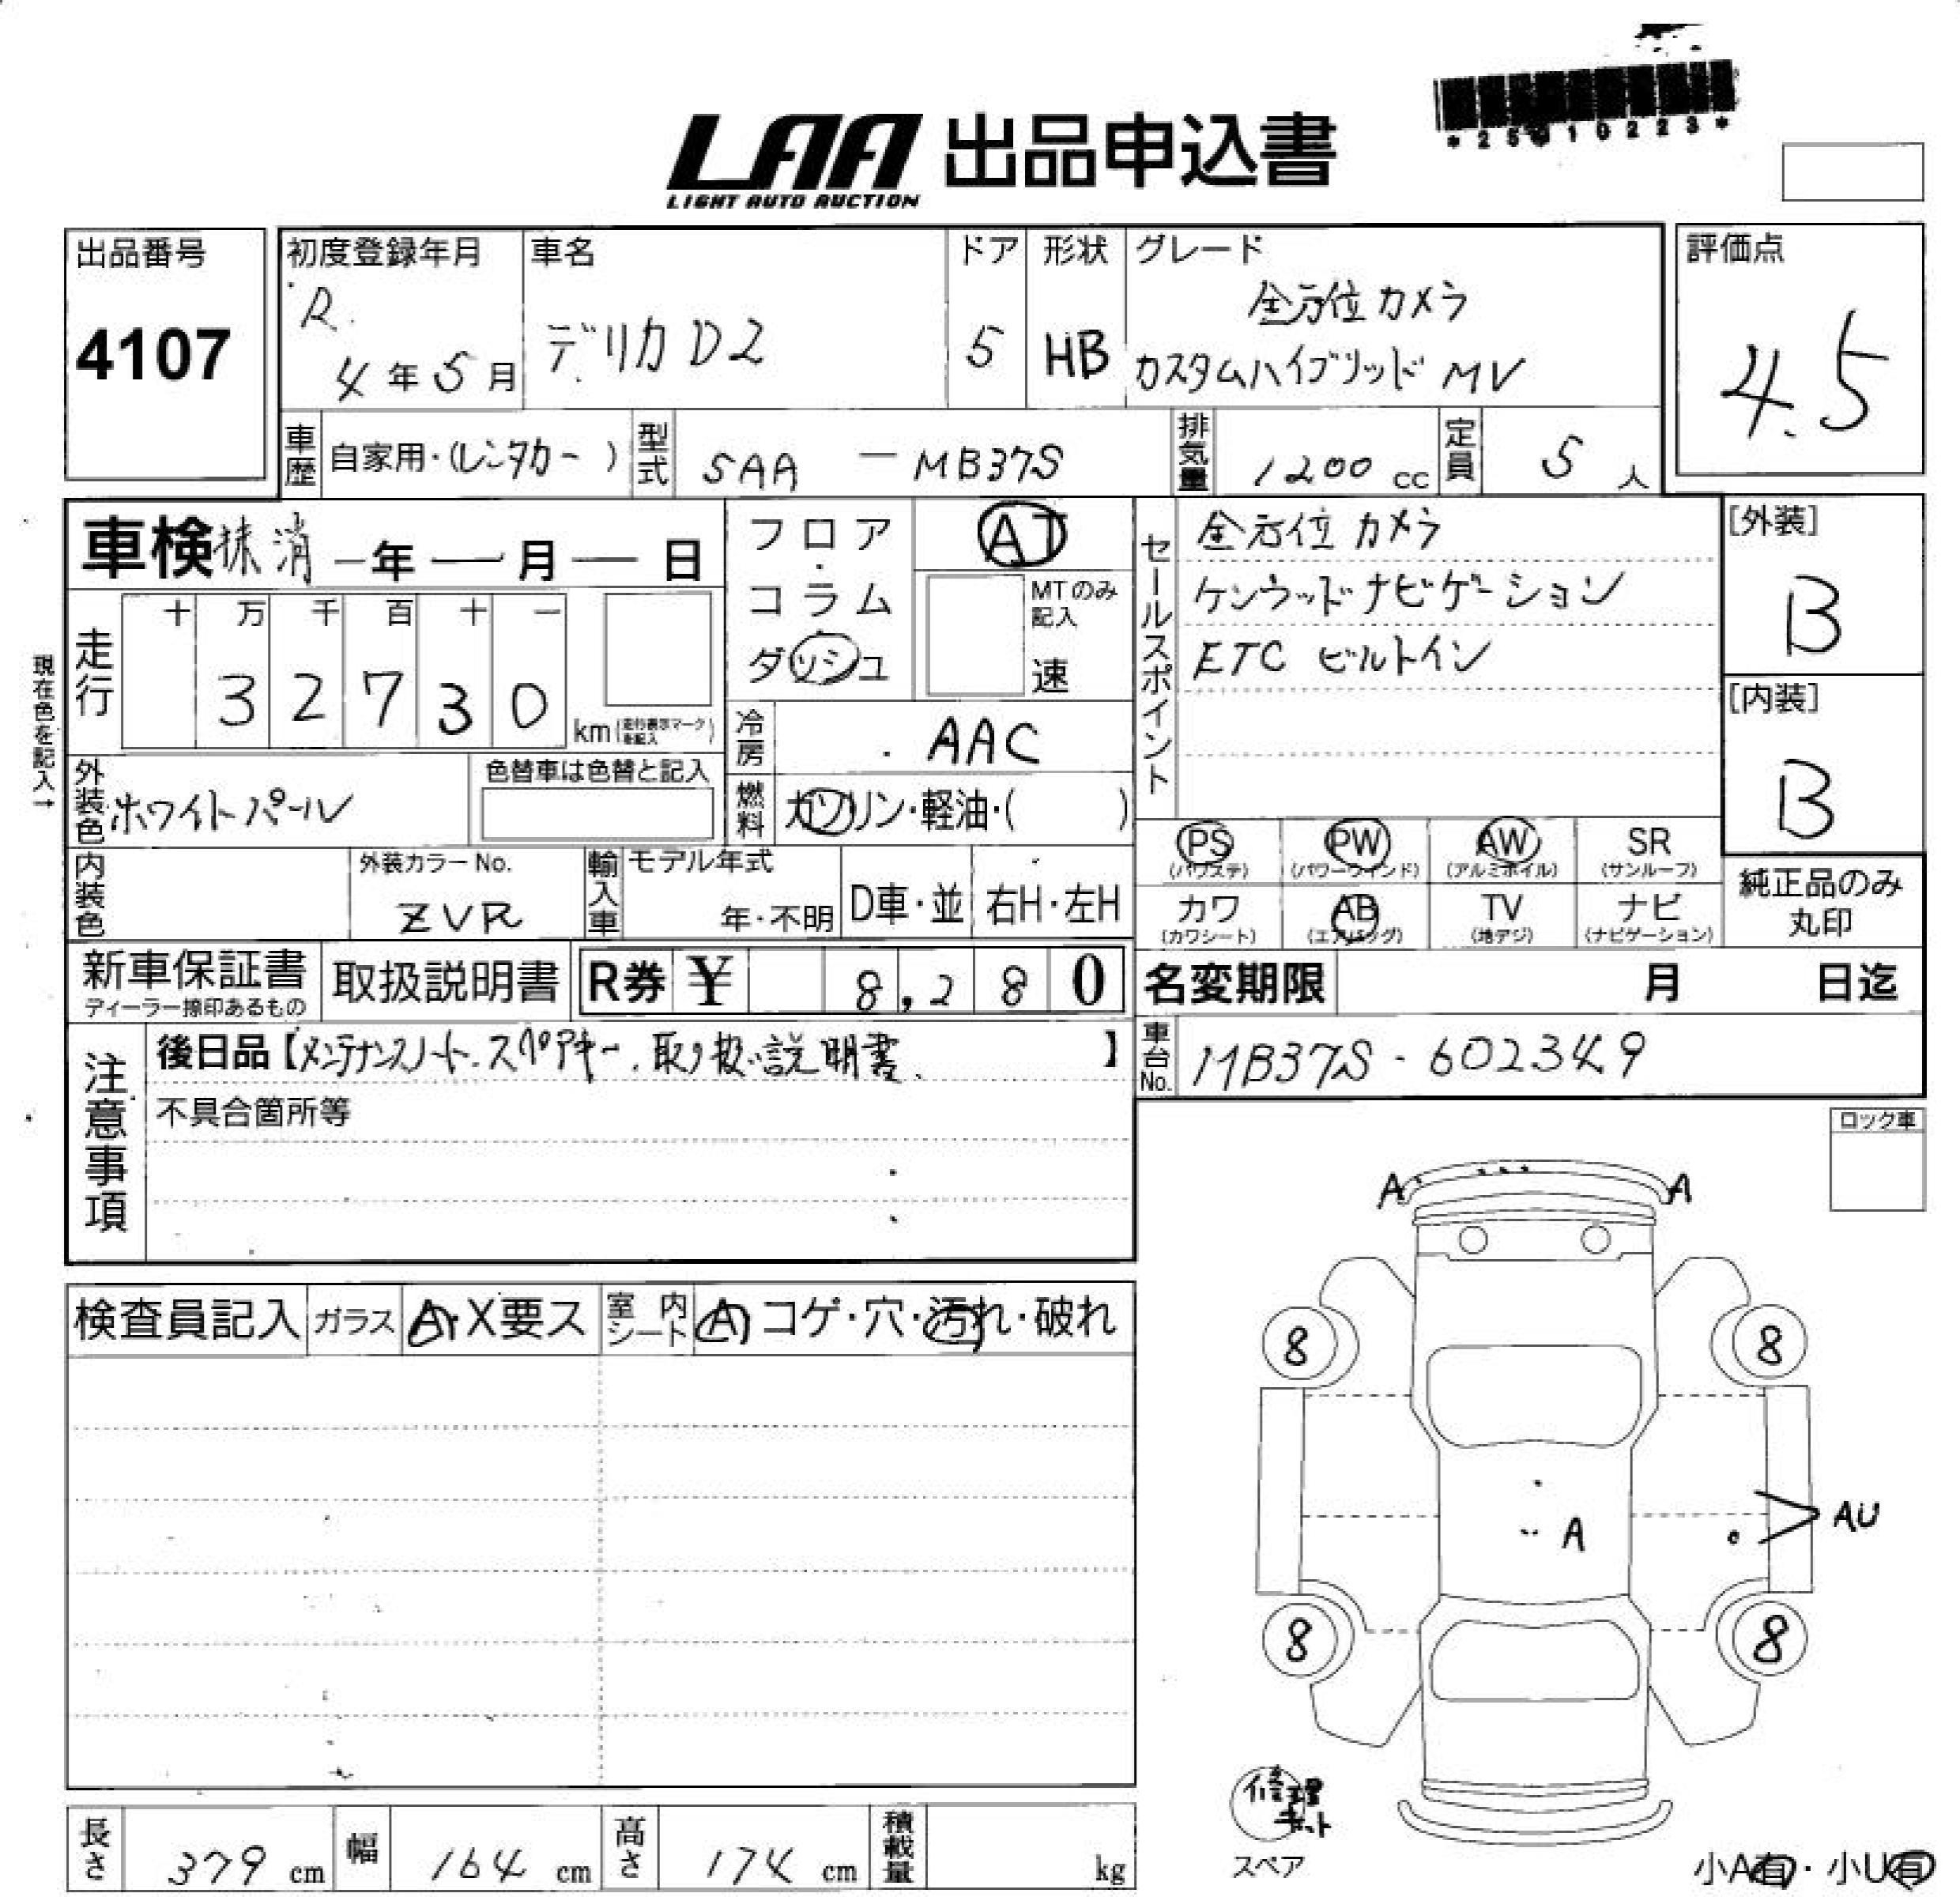 *25010223*
LAA 出品申込書
LIGHT AUTO AUCTION
出品番号
4107
初度登録年月
R.
4年5月
車名
デリカD2
ドア
5
形状
HB
グレード
全方位カメラ
カスタムハイブリッド MV
評価点
4.5
車歴
自家用・(レンタカー)
型式
5AA - MB37S
排気量
1200 cc
定員
5 人
車検 抹消 ー年ー月ー日
走行
十 万 千 百 十 一
3 2 7 3 0
km (走行表示マークを記入)
現在色を記入→
フロア・コラム・ダッシュ
AT
MTのみ記入
速
セールスポイント
全方位カメラ
ケンウッドナビゲーション
ETC ビルトイン
[外装]
B
[内装]
B
冷房
AAC
外装色
ホワイトパール
色替車は色替と記入
燃料
ガソリン・軽油・( )
PS
(パワステ)
PW
(パワーウインド)
AW
(アルミホイル)
SR
(サンルーフ)
カワ
(カワシート)
AB
(エアバッグ)
TV
(地デジ)
ナビ
(ナビゲーション)
純正品のみ
丸印
内装色
外装カラーNo.
ZVR
輸入車
モデル年式
年・不明
D車・並
右H・左H
新車保証書
ディーラー捺印あるもの
取扱説明書
R券 ¥ 8,280
名変期限 月 日迄
注意事項
後日品【メンテナンスノート.スペアキー.取り扱い説明書.】
不具合箇所等
車台No.
MB37S - 602349
ロック車
検査員記入
ガラス
A・X要ス
室内シート
A・コゲ・穴・汚れ・破れ
A A
8 8
AU
A
8 8
修理キット
スペア
小A有・小U有
長さ
379 cm
幅
164 cm
高さ
174 cm
積載量
kg